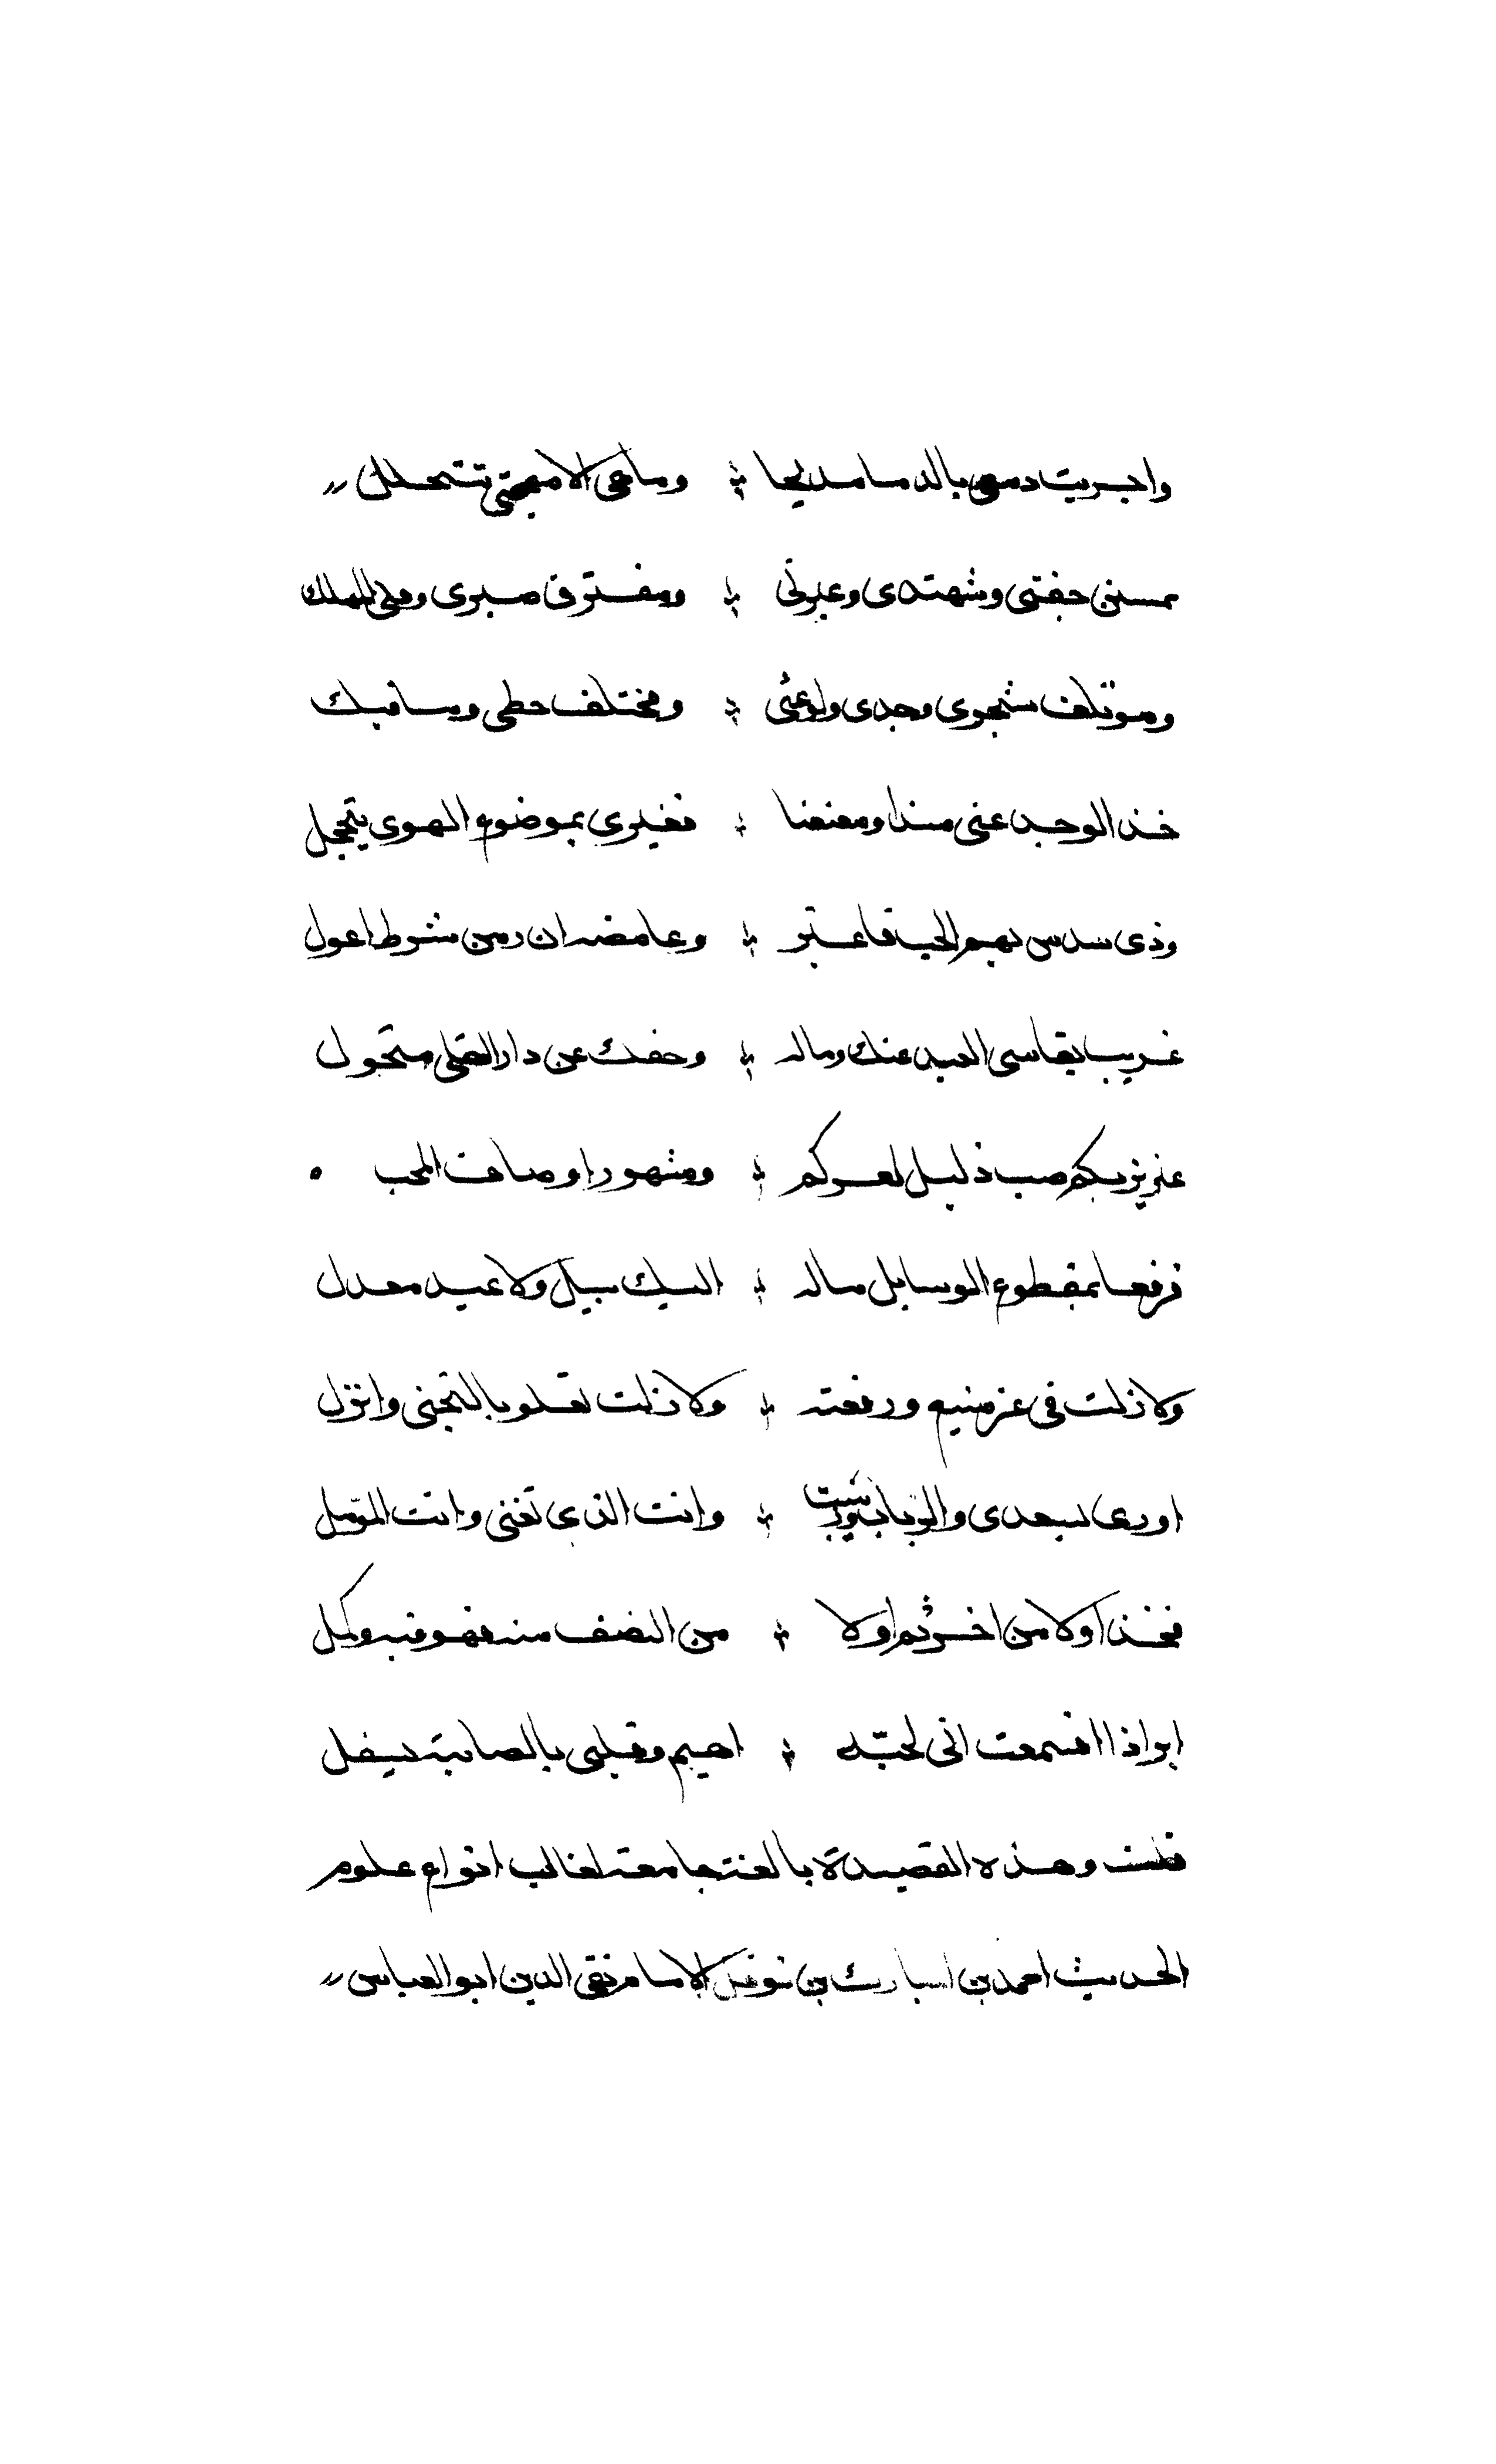 واجريت دمعي بالدما مدبجا ⁘ وما هي الا مهجتي تتحلل
جفني وشهدى وعبرتى ⁘ ومفترق صبرى وقلبى
وموتلف شجوى وجدى ولوعتى ⁘ ومختلف حظى وما فيك
خذ الوجد عنى مسندا ومعنعنا ⁘ فغيرى بموضوع الهوى يتجمل
وذى من بهم الحب فاعتبر ⁘ وغامضه ان رمت شرط اعول
غريب يقاسى البعد عنك وماله ⁘ وحقك عن دار القلى متحول
عزيز بكم صب ذليل لعزكم ⁘ ومشهور اوصاف المحب
فرفعا بمقطوع الوسايل ماله ⁘ اليك سبيل ولا عنه معدل
ولا زلت فى عز منيع ورفعته ⁘ ولا زلت تعلو بالتجنى وانزل
اورى بسعدى والرباب وزينب ⁘ وانت الذى تعنى وانت المؤمل
فخذ اولا من اخر ثم اولا ⁘ من النصف منه فهو فيه مكمل
ابر اذا اقسمت انى لحبّه ⁘ اهيم وقلبى بالصبابة يشغل
قلت وهذه القصيدة بالغة جامعة لغالب انواع علوم
الحديث احمد بن المبارك بن نوفل الامام تقى الدين ابو العباس